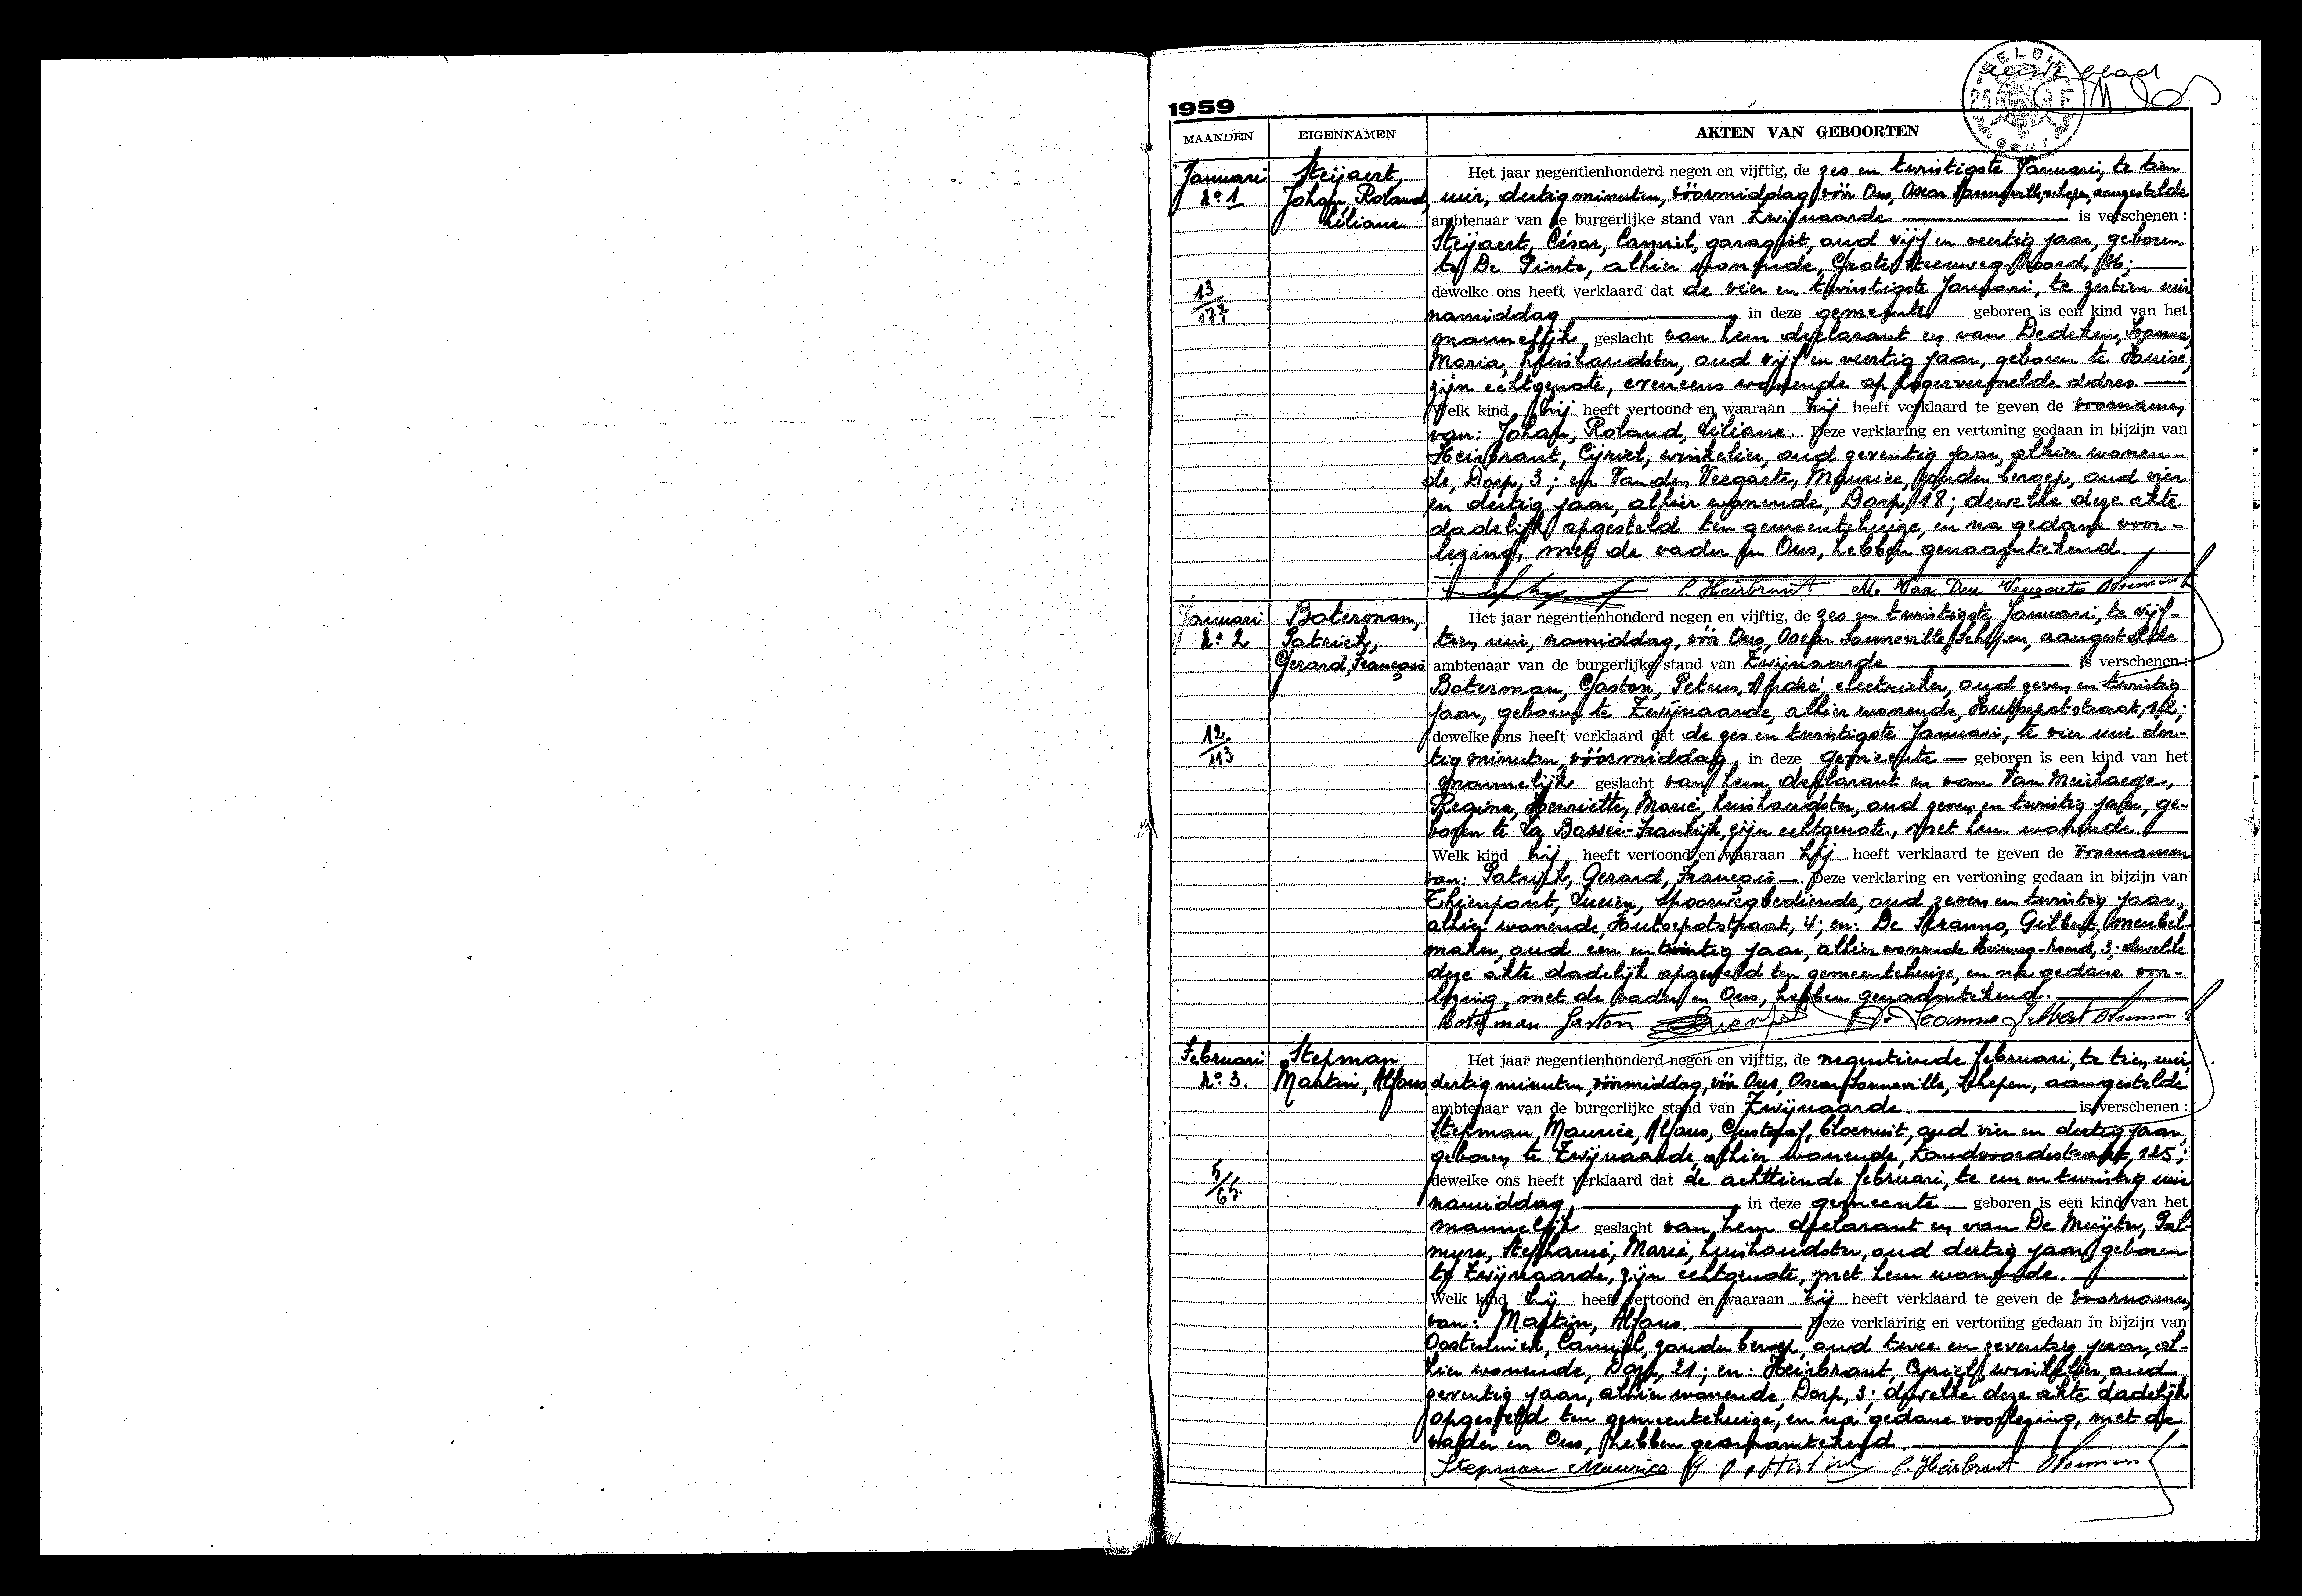 eerste blad
BELGIE
1959
MAANDEN
EIGENNAMEN
AKTEN VAN GEBOORTEN
Januari
No 1
13/177
Steÿaert,
Johan, Roland,
Liliane
Het jaar negentienhonderd negen en vijftig, de zes en twintigste Januari, te tien
uur, dertig minuten, vóórmiddag vóór Ons, Oscar Sonneville, schepen, aangestelde
ambtenaar van de burgerlijke stand van Zwijnaarde is verschenen :
Steÿaert, César, Camiel, garagist, oud vijf en veertig jaar, geboren
te De Pinte, alhier wonende, Grote Steenweg-Noord, 36;
dewelke ons heeft verklaard dat de vier en twintigste Januari, te zestien uur
namiddag, in deze gemeente geboren is een kind van het
mannelijk geslacht van hem declarant en van Dedeken, Ivonne,
Maria, huishoudster, oud vijf en veertig jaar, geboren te Huise,
zijn echtgenote, eveneens wonende op hogervermelde adres.
Welk kind hij heeft vertoond en waaraan hij heeft verklaard te geven de voornamen
van: Johan, Roland, Liliane. Deze verklaring en vertoning gedaan in bijzijn van
Heirbrant, Cyriel, winkelier, oud zeventig jaar, alhier wonen-
de, Dorp, 3; en Van den Veegaete, Maurice, zonder beroep, oud vier
en dertig jaar, alhier wonende, Dorp, 18; dewelke deze akte
dadelijk opgesteld ten gemeentehuize, en na gedane voor-
lezing, met de vader en Ons, hebben genaamtekend.
C. Heirbrant M. Van Den Veegaete
Januari
No 2
12/113
Boterman,
Patrick,
Gerard, François
Het jaar negentienhonderd negen en vijftig, de zes en twintigste Januari, te vijf-
tien uur, namiddag, vóór Ons, Oscar Sonneville, Schepen, aangestelde
ambtenaar van de burgerlijke stand van Zwijnaarde is verschenen :
Boterman, Gaston, Petrus, André, electrieker, oud zeven en twintig
jaar, geboren te Zwijnaarde, alhier wonende, Hutsepotstraat, 12;
dewelke ons heeft verklaard dat de zes en twintigste Januari, te vier uur der-
tig minuten, vóórmiddag, in deze gemeente geboren is een kind van het
mannelijk geslacht van hem declarant en van Van Meirhaege,
Regina, Henriette, Marie, huishoudster, oud zeven en twintig jaar, ge-
boren te La Bassée-Frankrijk, zijn echtgenote, met hem wonende.
Welk kind hij heeft vertoond en waaraan hij heeft verklaard te geven de voornamen
van: Patrick, Gerard, François. Deze verklaring en vertoning gedaan in bijzijn van
Thienpont, Lucien, spoorwegbediende, oud zeven en twintig jaar,
alhier wonende, Hutsepotstraat, 4; en: De Stranno, Gilbert, meubel-
maker, oud een en twintig jaar, alhier wonende Heirweg-Noord, 3; dewelke
deze akte dadelijk opgesteld ten gemeentehuize, en na gedane voor-
lezing, met de vader en Ons, hebben genaamtekend.
Boterman Gaston
Februari
No 3.
5/65.
Stepman
Martin, Alfons
Het jaar negentienhonderd negen en vijftig, de negentiende februari, te tien uur,
dertig minuten, vóórmiddag, vóór Ons, Oscar Sonneville, schepen, aangestelde
ambtenaar van de burgerlijke stand van Zwijnaarde is verschenen :
Stepman, Maurice, Alfons, Gustaaf, bloemist, oud vier en dertig jaar,
geboren te Zwijnaarde, alhier wonende, Zandvoordestraat, 125;
dewelke ons heeft verklaard dat de achttiende februari, te een en twintig uur
namiddag, in deze gemeente geboren is een kind van het
mannelijk geslacht van hem declarant en van De Muÿter, Pal-
myre, Stephanie, Marie, huishoudster, oud dertig jaar, geboren
te Zwijnaarde, zijn echtgenote, met hem wonende.
Welk kind hij heeft vertoond en waaraan hij heeft verklaard te geven de voornamen
van: Martin, Alfons. Deze verklaring en vertoning gedaan in bijzijn van
Oosterlinck, Camiel, zonder beroep, oud twee en zeventig jaar, al-
hier wonende, Dorp, 21; en: Heirbrant, Cyriel, winkelier, oud
zeventig jaar, alhier wonende, Dorp, 3; dewelke deze akte dadelijk
opgesteld ten gemeentehuize, en na gedane voorlezing, met de
vader en Ons, hebben genaamtekend.
Stepman Maurice C. Heirbrant